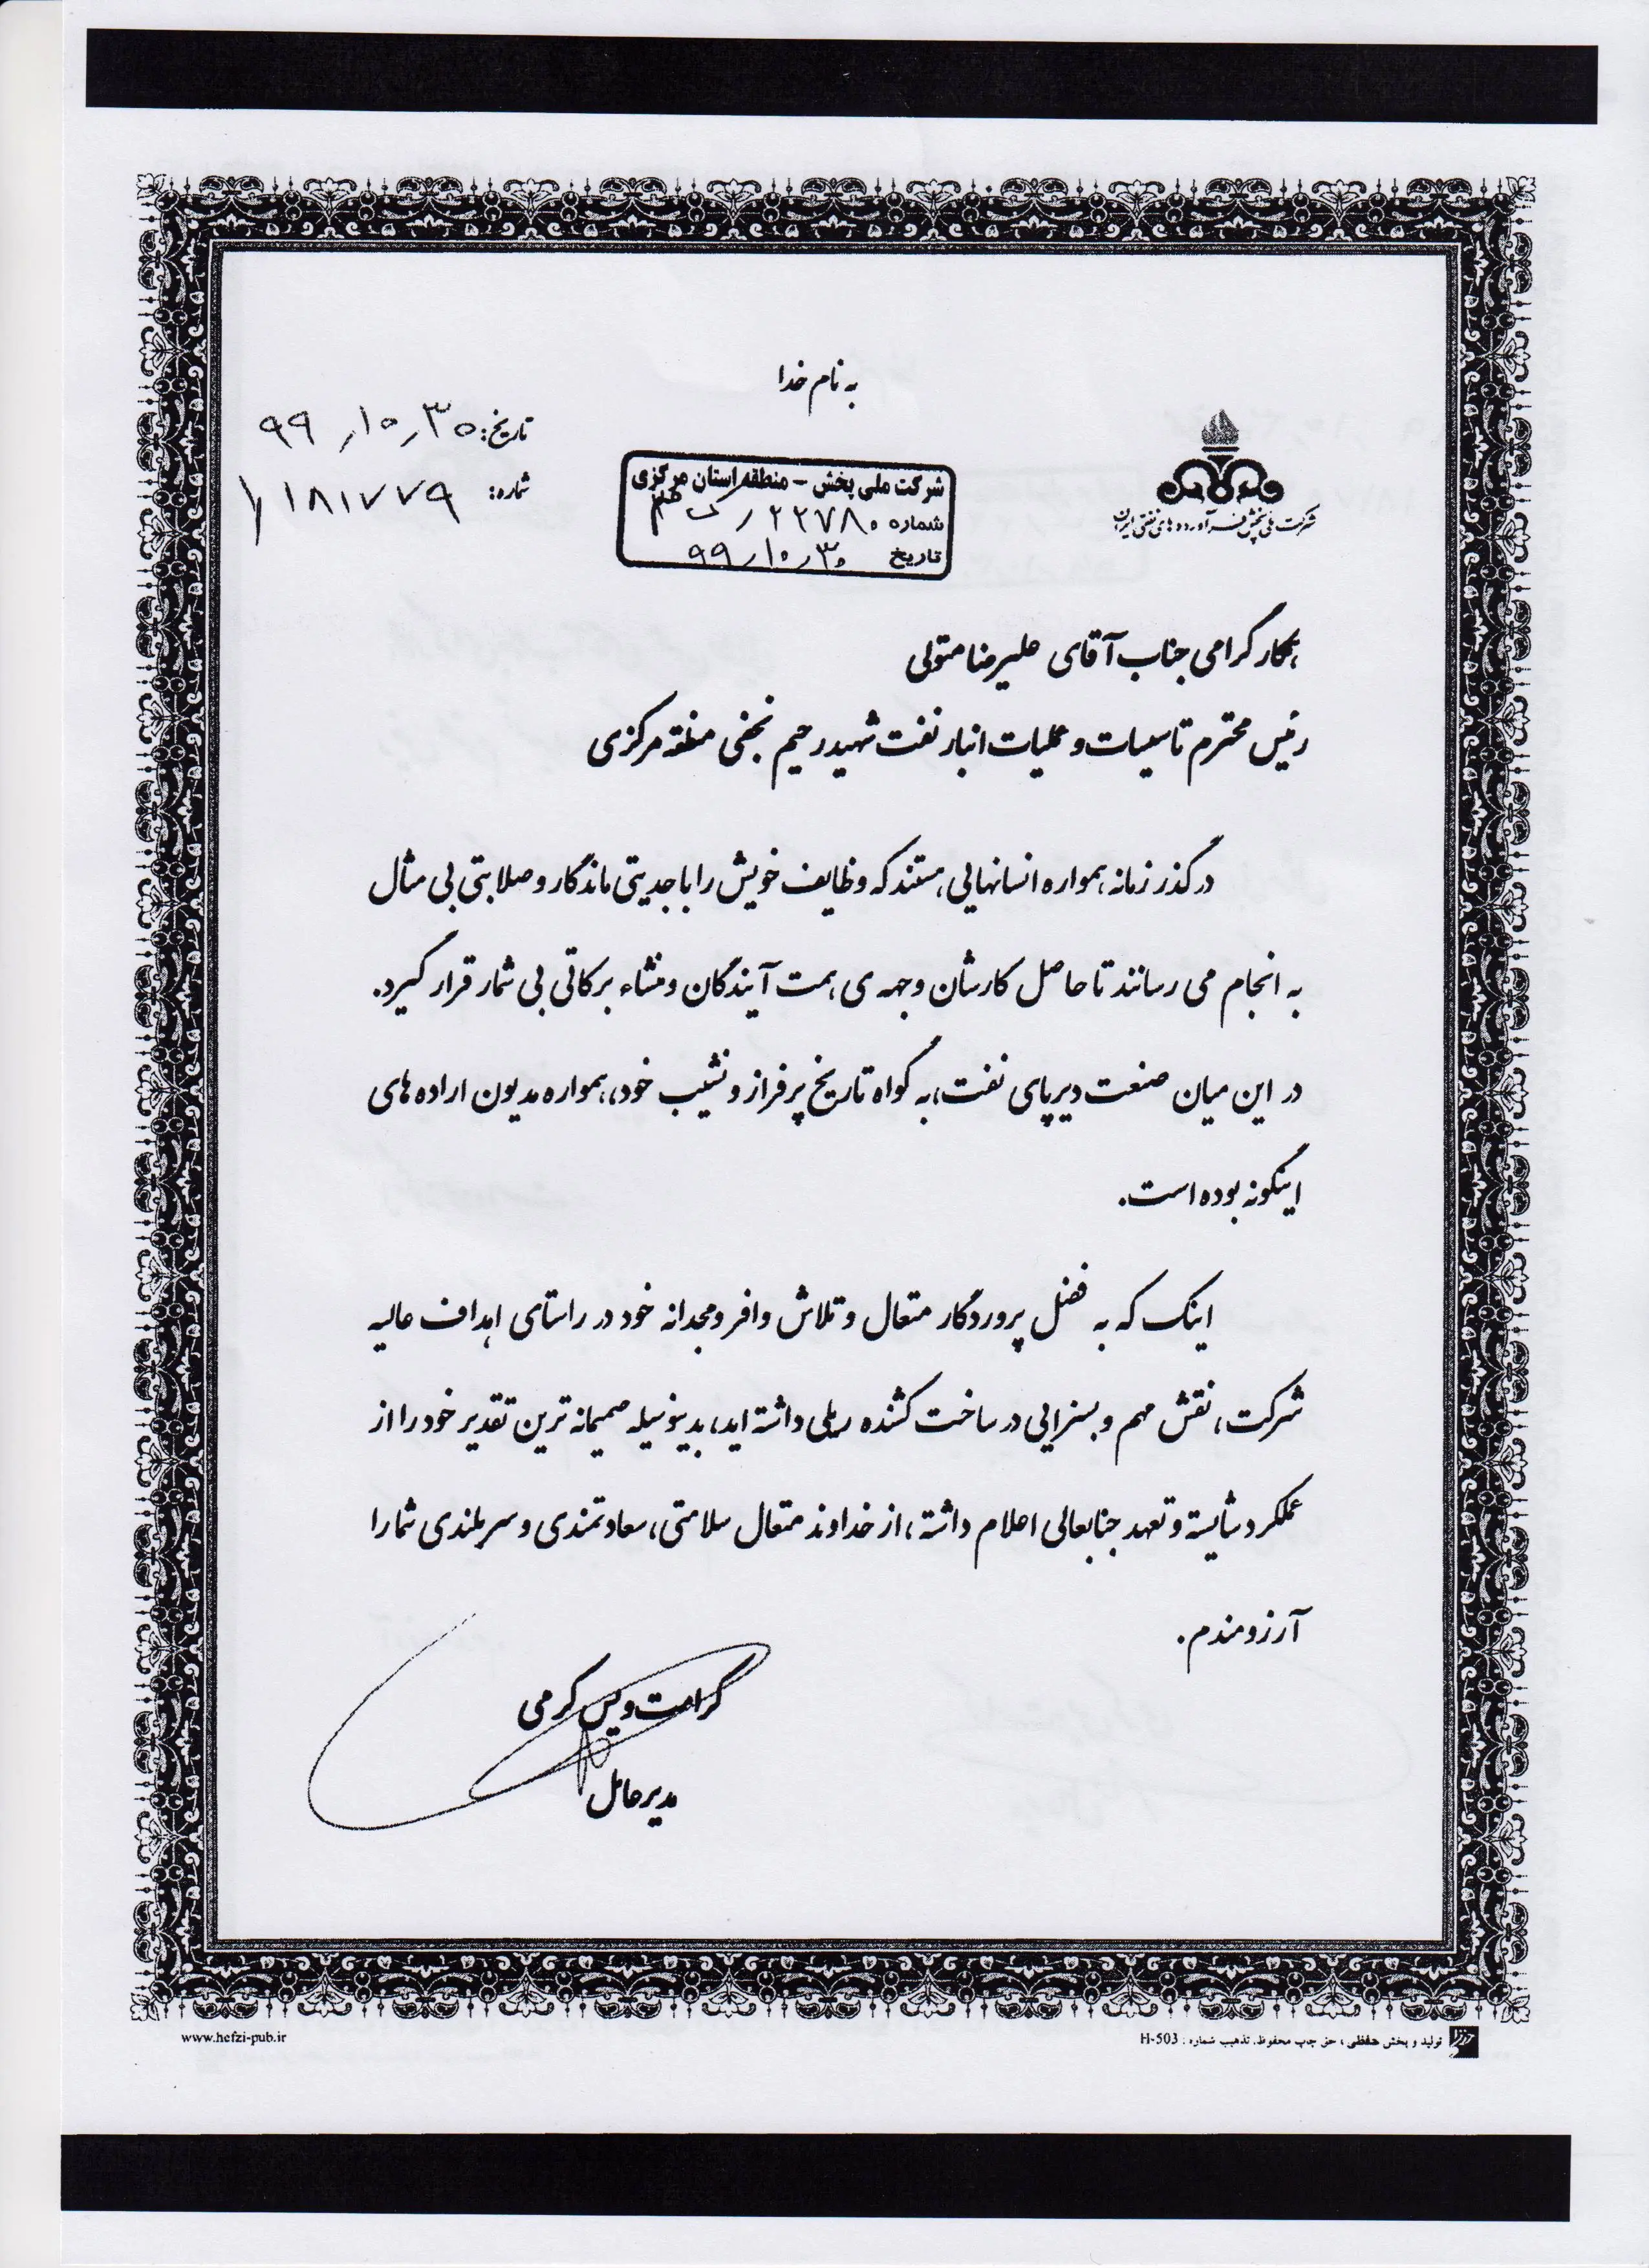 به نام خدا
تاریخ: ۹۹/۱۰/۳۰
شماره: ۱/۱۸۱۷۷۹
شرکت ملی پخش فرآورده های نفتی ایران
شرکت ملی پخش - منطقه استان مرکزی
شماره ۲۲۷۸۰
تاریخ ۹۹/۱۰/۳۰
همکار گرامی جناب آقای علیرضا متولی
رئیس محترم تاسیسات و عملیات انبار نفت شهید رحیم نجفی منطقه مرکزی
در گذر زمانه همواره انسانهایی هستند که وظایف خویش را با جدیتی ماندگار و صلابتی بی مثال
به انجام می رسانند تا حاصل کارشان وجهه ی همت آیندگان و منشاء برکاتی بی شمار قرار گیرد.
در این میان صنعت دیرپای نفت، به گواه تاریخ پرفراز و نشیب خود، همواره مدیون اراده های
اینگونه بوده است.
اینک که به فضل پروردگار متعال و تلاش وافر و مجدانه خود در راستای اهداف عالیه
شرکت، نقش مهم و بسزایی در ساخت کشنده ریلی داشته اید، بدینوسیله صمیمانه ترین تقدیر خود را از
عملکرد شایسته و تعهد جنابعالی اعلام داشته، از خداوند متعال سلامتی، سعادتمندی و سربلندی شما را
آرزومندم.
کرامت ویس کرمی
مدیرعامل
www.hefzi-pub.ir
تولید و پخش حفظی، حق چاپ محفوظ. تذهیب شماره: H-503